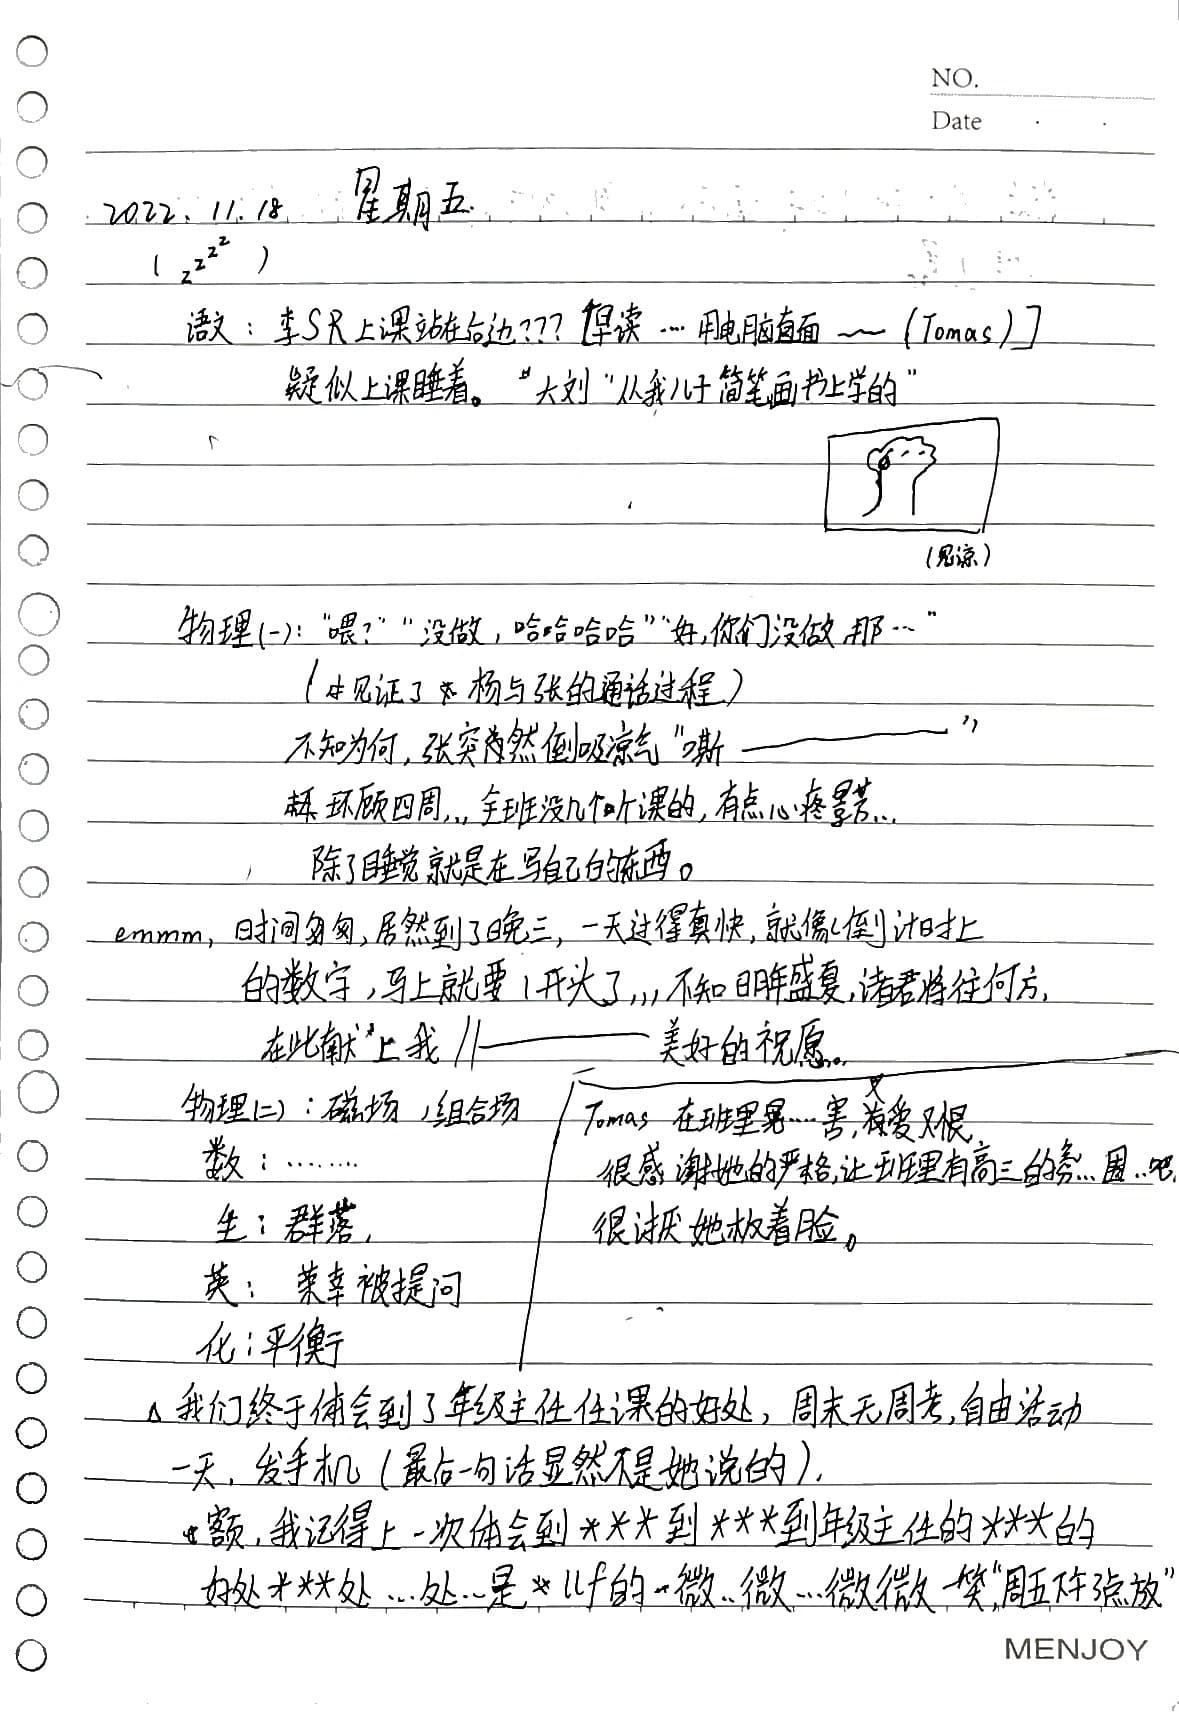 NO.
Date
2022.11.18 星期五.
( z z z z )
语文：李SR上课站在后边???[早读 …. 用电脑直面 ~ (Tomas)]
疑似上课睡着。"大刘"从我儿子简笔画书上学的"
(见谅)
物理(一)："喂？" "没做，哈哈哈哈" "好，你们没做，那…"
(见证了 杨与张的通话过程)
不知为何，张突然倒吸凉气"嘶——"
环顾四周,,, 全班没几个听课的，有点心疼
除了睡觉就是在写自己的东西。
emmm，时间匆匆，居然到了晚三，一天过得真快，就像倒计时上
的数字，马上就要1开头了,,,不知明年盛夏，诸君将往何方，
在此献上我——美好的祝愿。..
物理(二)：磁场，组合场
数：……..
生：群落，
英：荣幸被提问
化：平衡
Tomas 在班里晃…..害，爱又恨，
很感谢她的严格，让班里有高三的氛…围..吧，
很讨厌她板着脸。
△我们终于体会到了年级主任任课的好处，周末无周考，自由活动
一天，发手机(最后一句话显然不是她说的)，
额，我记得上一次体会到***到***到年级主任的***的
好处***处…处…是*llf的一微..微…微微一笑，"周五下午3点放"
MENJOY